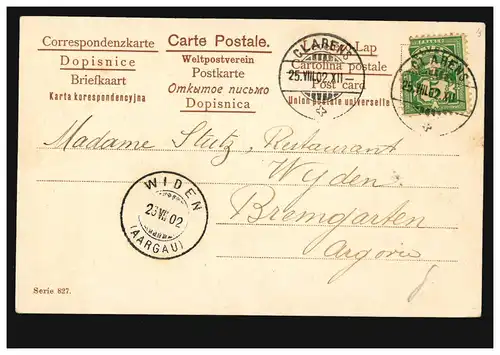 Correspondenzkarte
Dopisnice
Briefkaart
Karta korespondencyjna
Carte Postale.
Weltpostverein
Postkarte
Открытое письмо
Dopisnica
Lap
Cartolina postale
Post card
Union postale universelle
CLARENS
25.VIII.02.XII–
CLARENS
25.VIII.02.XII–
Madame Stutz, Restaurant
Wyden
Bremgarten
Argovie
WIDEN
(AARGAU)
Serie 827.